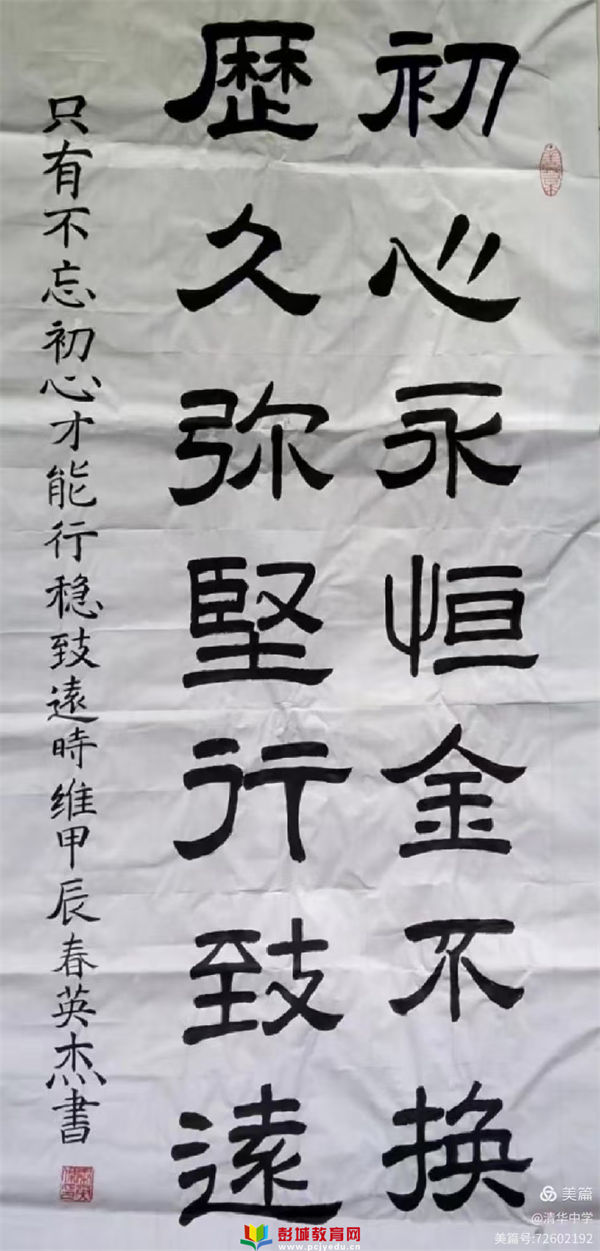 初心永恒金不换
歷久弥堅行致遠
只有不忘初心才能行稳致遠時维甲辰春英杰書
美篇
@清华中学
美篇号:72602192
彭城教育网
www.pcjyedu.cn